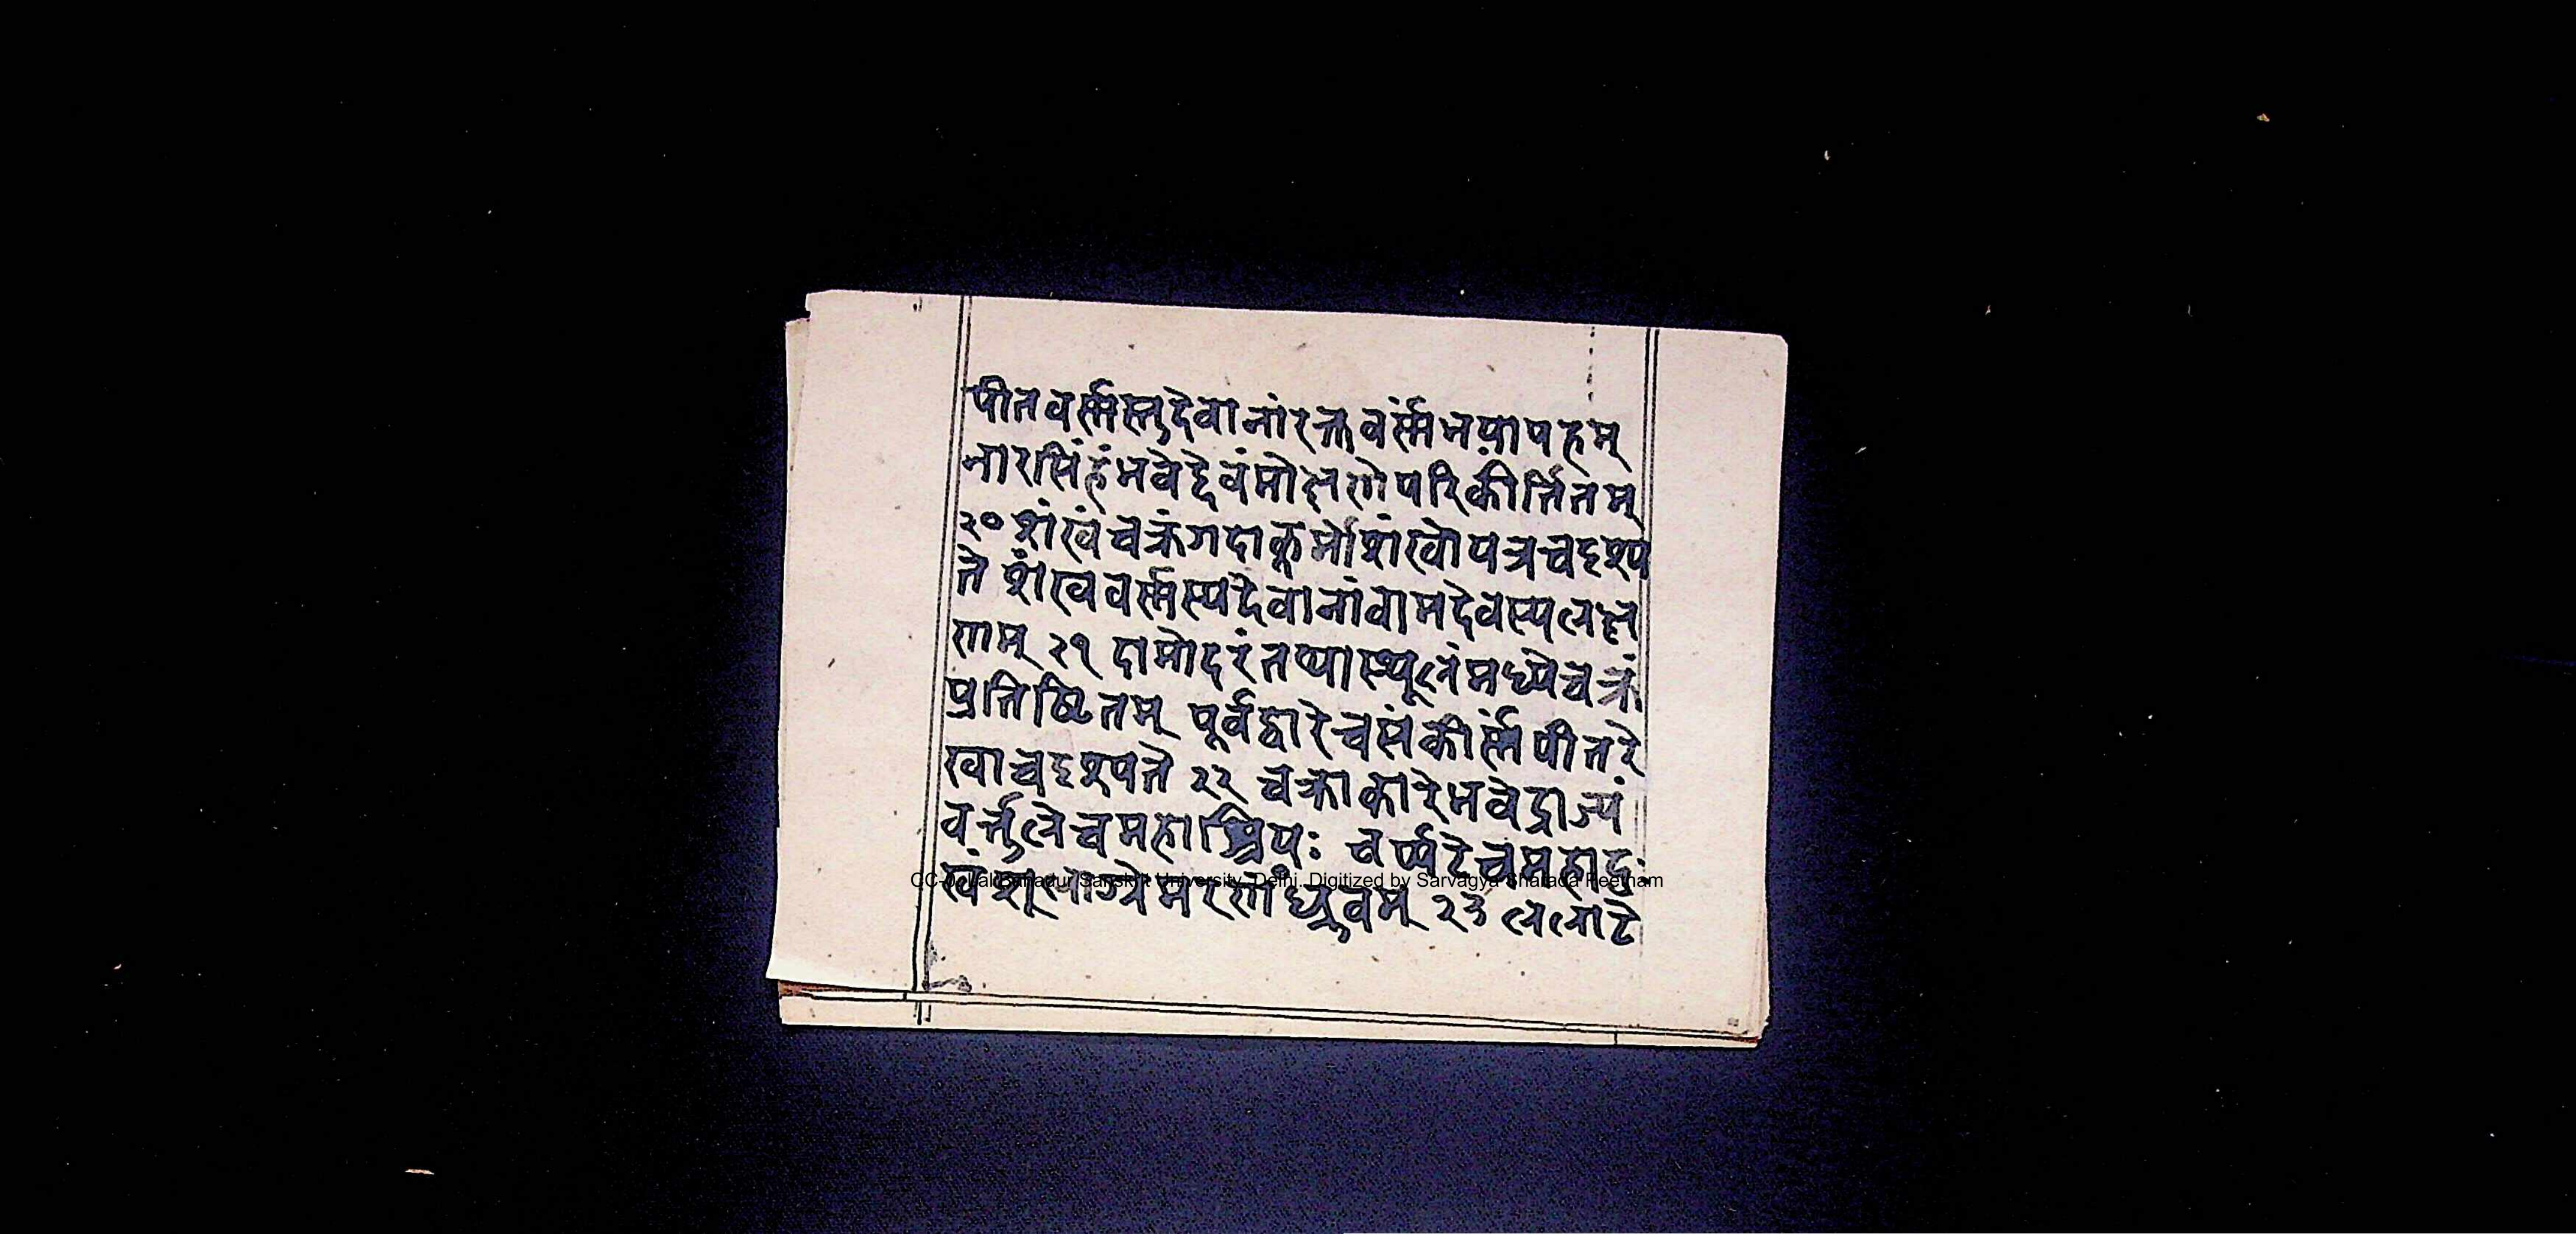 पीतवर्णस्तुदेवानांरक्तवर्णंभयापहम्
नारसिंहंभवेद्देवंमोक्षणोपरिकीर्त्तितम्
२० शंखंचक्रंगदाकूर्मोशंखोयत्रचदृश्य
ते शंखवर्णस्यदेवानांवामदेवस्यलक्ष
णम् २१ दामोदरंतथास्थूलंमध्येचक्रं
प्रतिष्ठितम् पूर्वद्वारेचसंकीर्णंपीतरे
खाचदृश्यते २२ चक्राकारेभवेद्राज्यं
वर्त्तुलेचमहाश्रियः चर्प्पटेचमहादुः
खंशूलाग्रेमरणंध्रुवम् २३ ललाटे
CC-0. Lal Bahadur Sanskrit University, Delhi. Digitized by Sarvagya Sharada Peetham